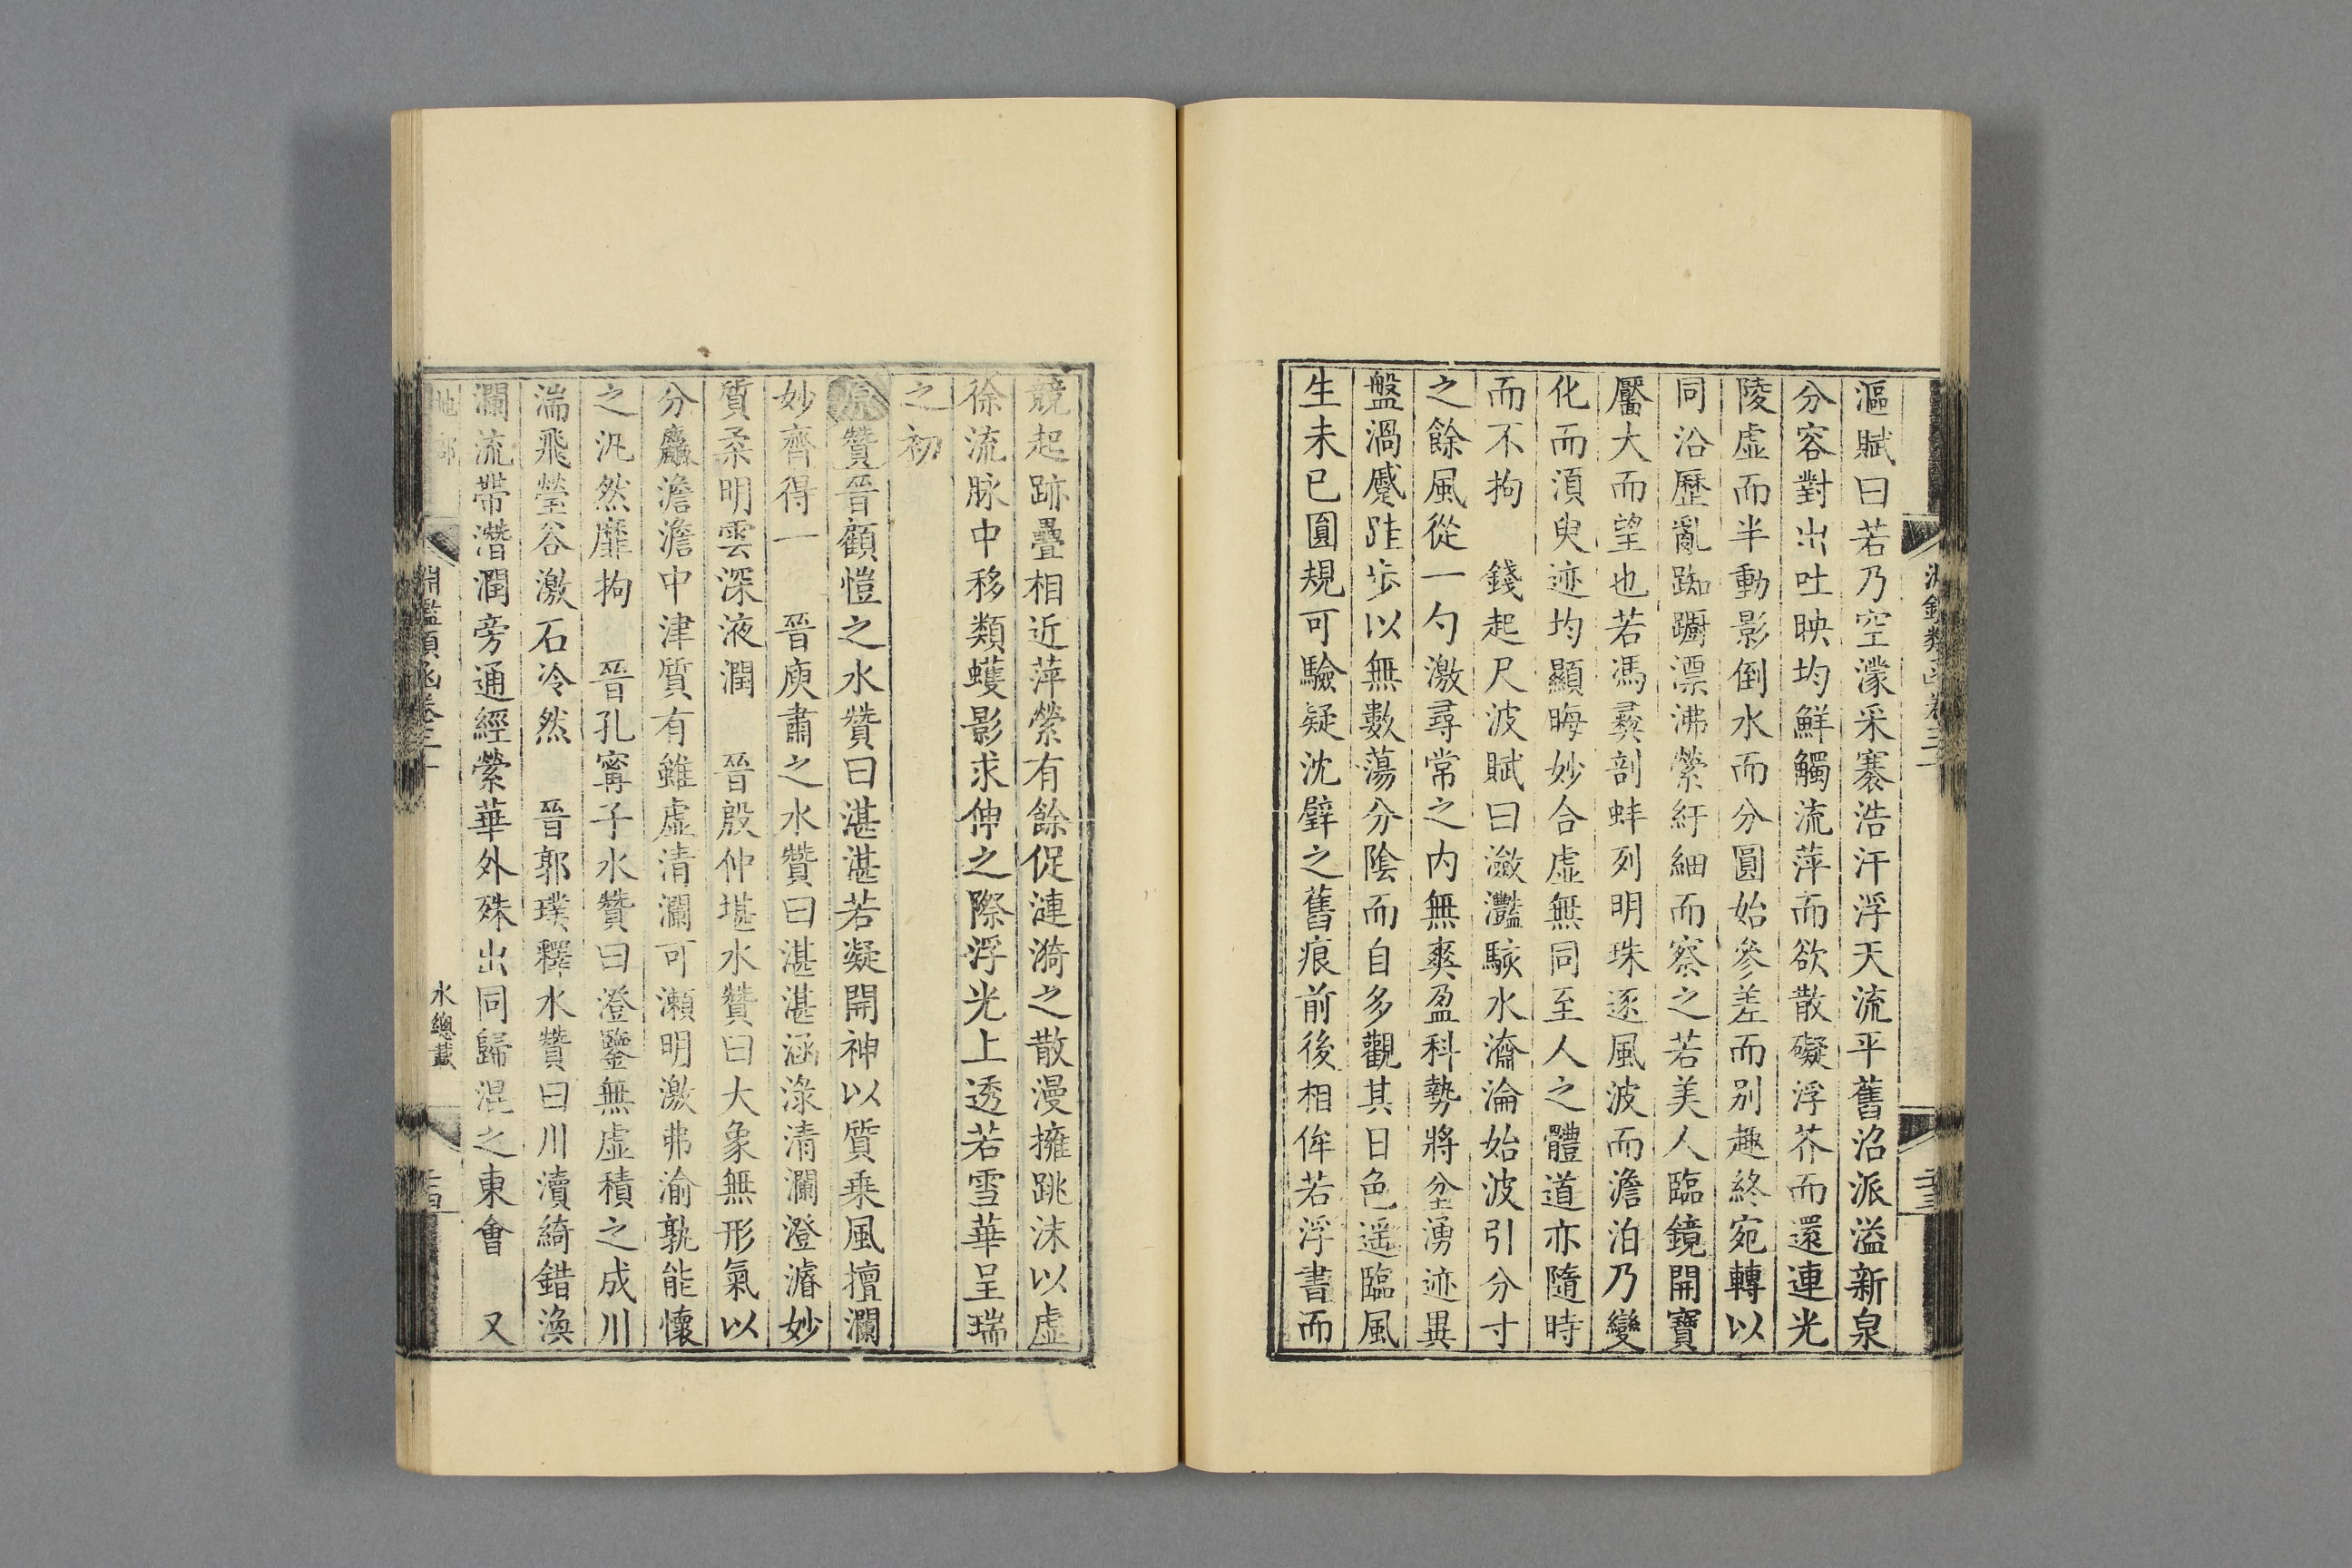 漚賦曰若乃空濛采褰浩汗浮天流平舊沼派溢新泉
分容對出吐映均鮮觸流萍而欲散礙浮芥而還連光
陵虛而半動影倒水而分圓始參差而别趣終宛轉以
同沿歷亂踟躕漂沸縈紆細而察之若美人臨鏡開寶
靨大而望也若馮彝剖蚌列明珠逐風波而澹泊乃變
化而湏臾迹均顯晦妙合虛無同至人之體道亦隨時
而不拘 錢起尺波賦曰瀲灩駭水瀹淪始波引分寸
之餘風從一勺激尋常之内無爽盈科勢將坌湧迹異
盤渦蹙跬步以無數蕩分陰而自多觀其日色遥臨風
生未已圓規可驗疑沈璧之舊痕前後相侔若浮書而
競起跡疊相近萍縈有餘促漣漪之散漫擁跳沫以虛
徐流脉中移類蠖影求伸之際浮光上透若雪華呈瑞
之初
原贊晉顧愷之水贊曰湛湛若凝開神以質乗風擅瀾
妙齊得一 晉庾肅之水贊曰湛湛涵淥清瀾澄濬妙
質柔明雲深液潤 晉殷仲堪水贊曰大象無形氣以
分麤澹澹中津質有雖虛清瀾可瀨明激弗渝孰能懷
之汎然靡拘 晉孔寗子水贊曰澄鑒無虛積之成川
湍飛瑩谷激石泠然 晉郭璞釋水贊曰川瀆綺錯渙
瀾流帶潛潤旁通經縈華外殊出同歸混之東會 又
淵鑑類函卷三十
水總載